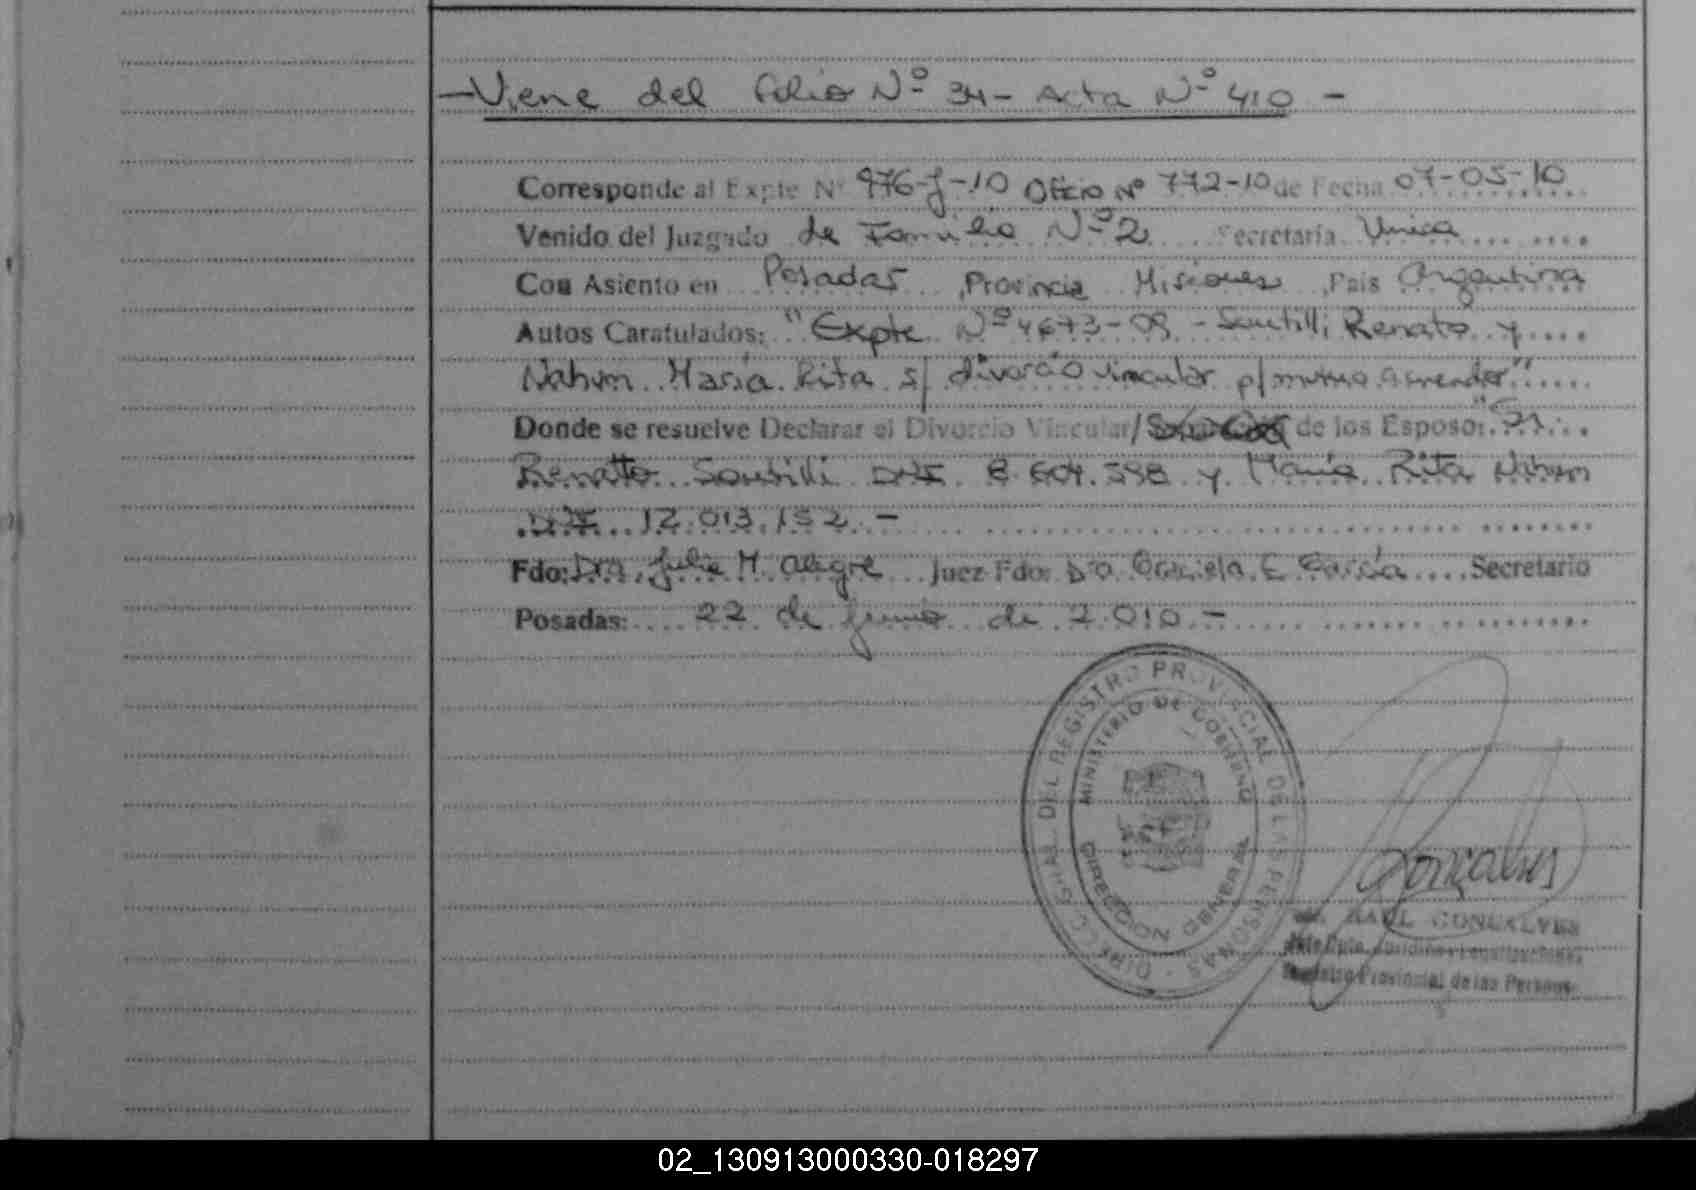 -Viene del folio Nº 34- Acta Nº 410 -
Corresponde al Expte Nº 976-J-10 Oficio Nº 772-10 de Fecha 07-05-10
Venido del Juzgado de Familia Nº 2 Secretaría Unica
Con Asiento en Posadas, Provincia Misiones, Pais Argentina
Autos Caratulados: "Expte Nº 4673-09 - Santilli Renato y
Nahum María Rita s/ divorcio vincular p/mutuo acuerdo"
Donde se resuelve Declarar el Divorcio Vincular/ de los Esposos:
Renatto Santilli DNI 8.604.598 y María Rita Nahum
DNI 12.013.152.-
Fdo: Dra. Julia M. Alegre Juez Fdo: Dra Graciela E García Secretario
Posadas: 22 de junio de 2.010.-
DEL REGISTRO PROVINCIAL DE LAS PERSONAS
MINISTERIO DE GOBIERNO
DIRECCION GENERAL
Gonçalves
RAUL GONCALVES
Registro Provincial de las Personas
02_130913000330-018297